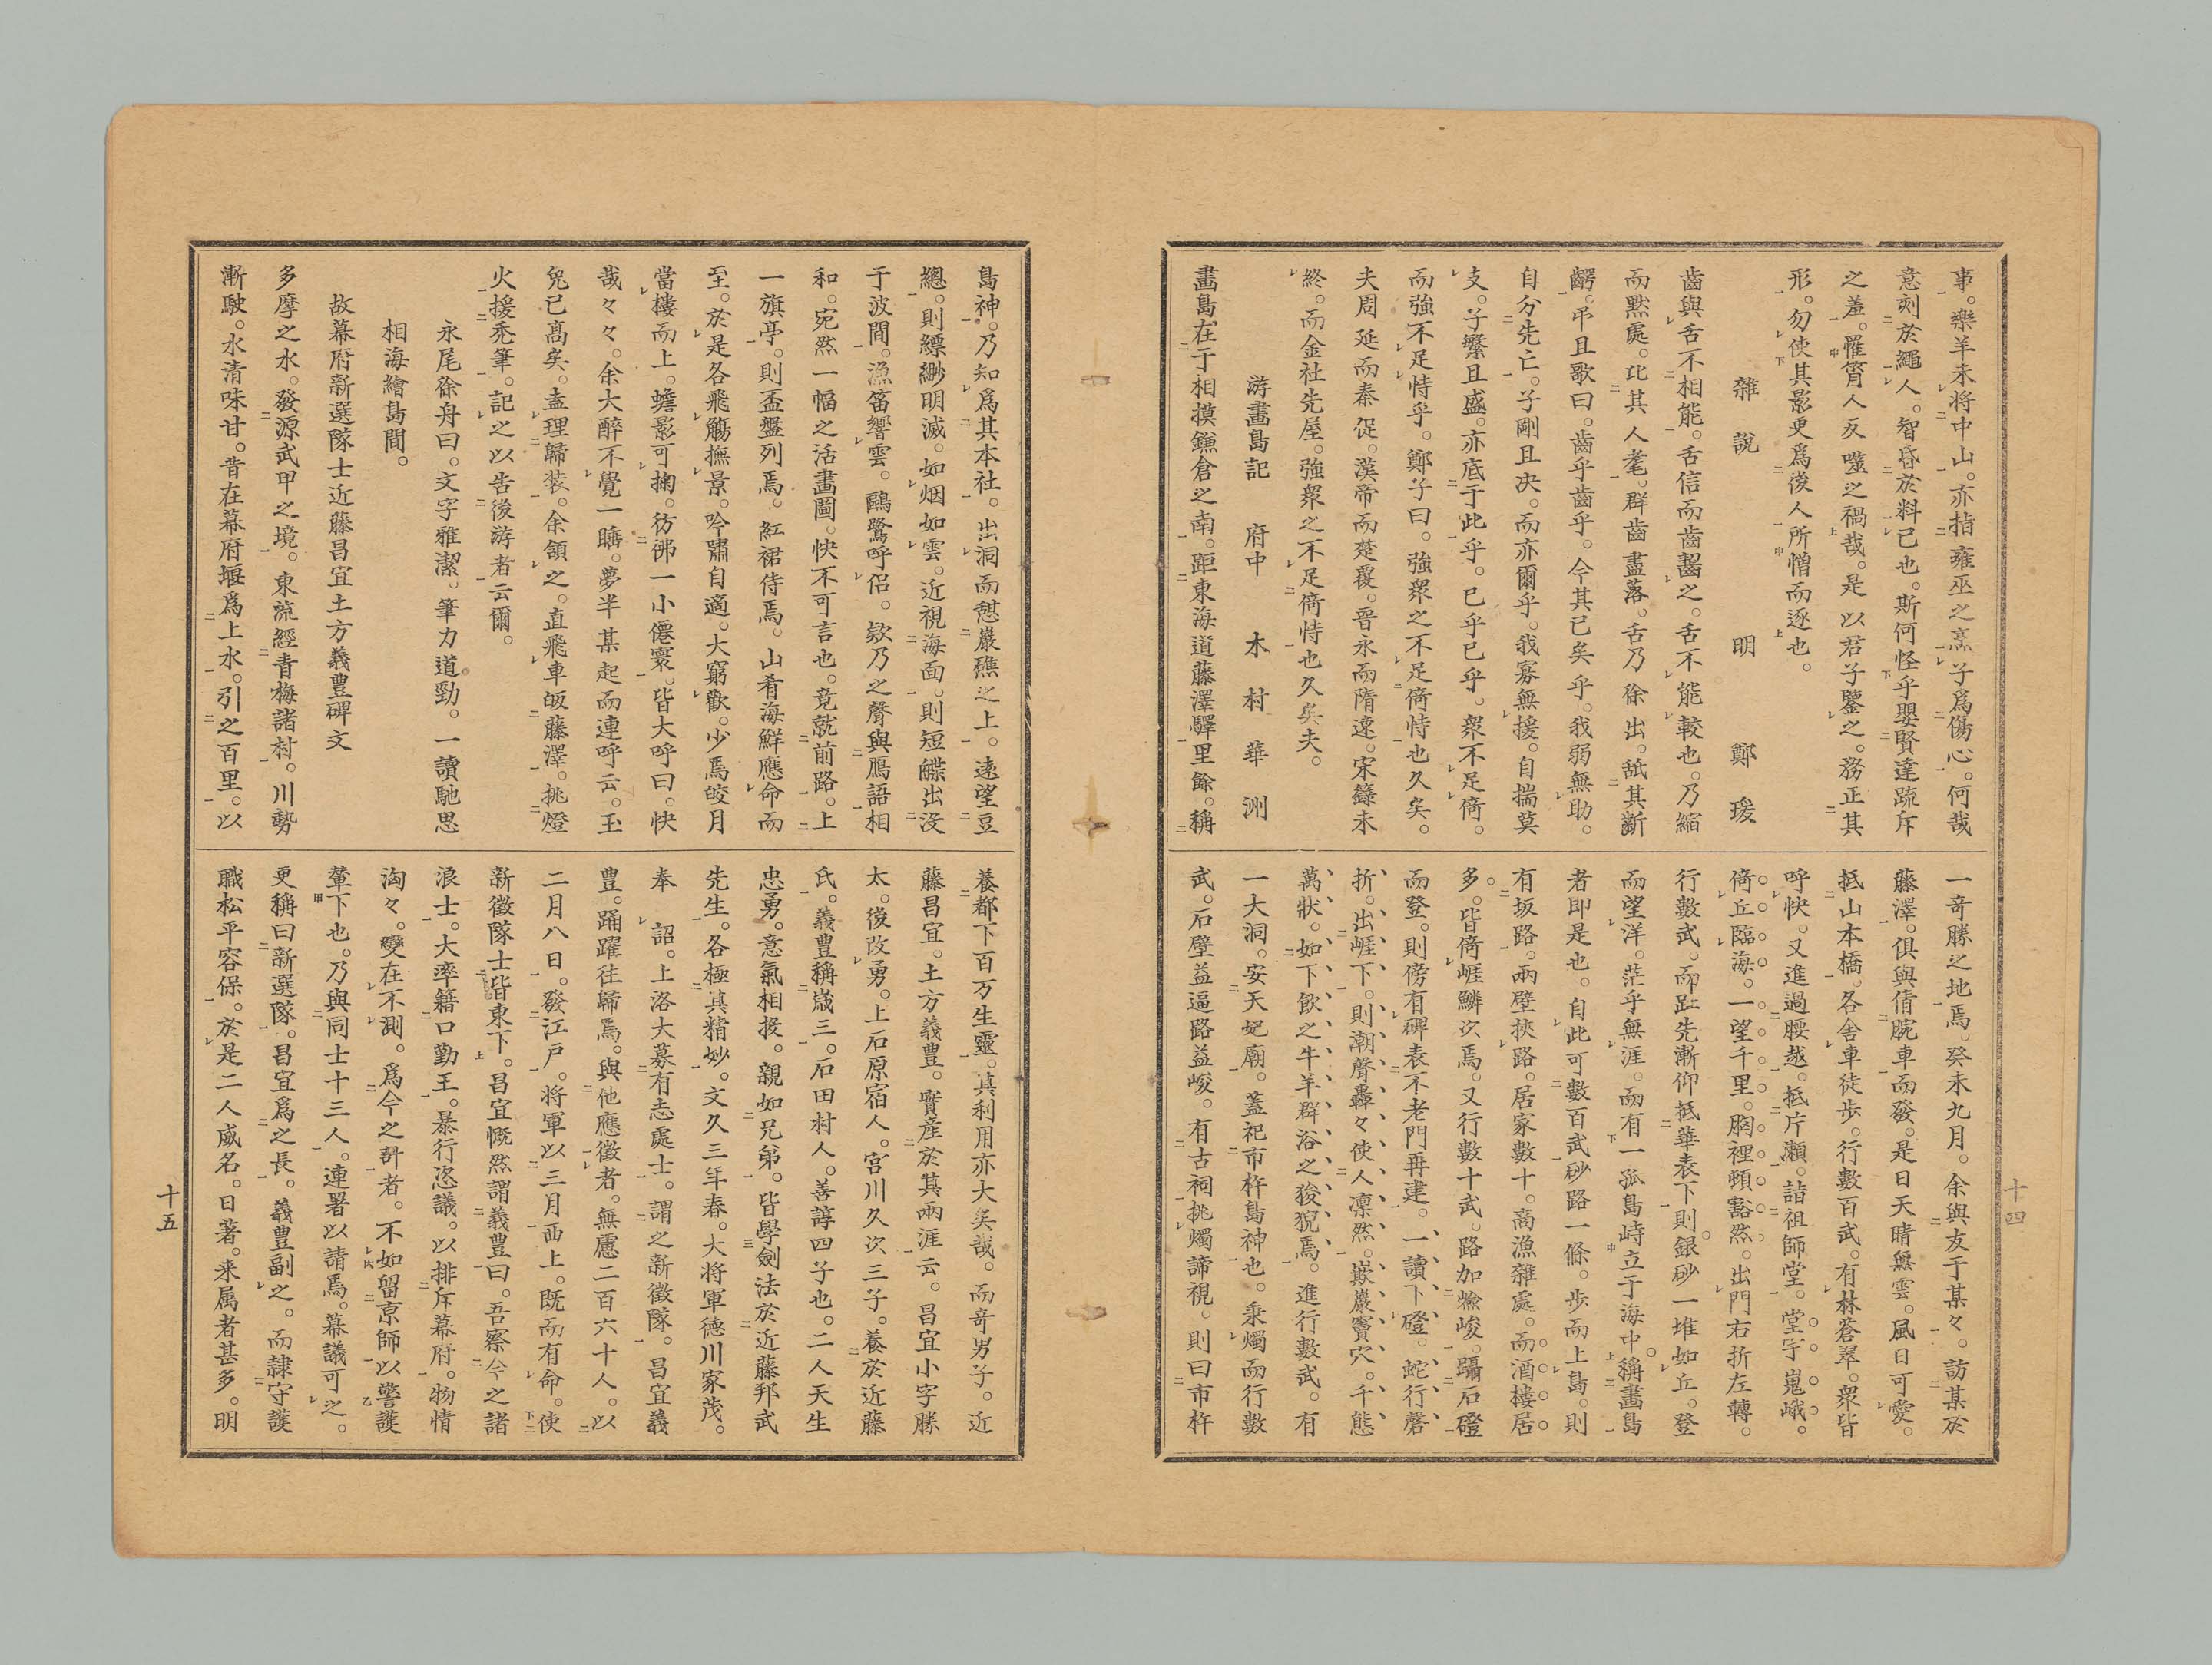 事。樂羊未將中山。亦指雍巫之烹子爲傷心。何哉
意刻於繩人。智昏於料己也。斯何怪乎嬰賢達疏斥
之羞。罹宵人反噬之禍哉。是以君子鑒之。務正其
形。勿使其影更爲後人所憎而逐也。
雜說 明 鄭瑗
齒與舌不相能。舌信而齒齧之。舌不能較也。乃縮
而黙處。比其人耄。群齒盡落。舌乃徐出。舐其斷
齶。弔且歌曰。齒乎齒乎。今其已矣乎。我弱無助。
自分先亡。子剛且决。而亦爾乎。我寡無援。自揣莫
支。子繁且盛。亦底于此乎。已乎已乎。衆不足倚。
而強不足恃乎。鄭子曰。強衆之不足倚恃也久矣。
夫周延而秦促。漢帝而楚䨱。晉永而隋速。宋籙未
終。而金社先屋。強衆之不足倚恃也久矣夫。
游畫島記 府中 木村華洲
畫島在于相摸鐮倉之南。距東海道藤澤驛里餘。稱
一奇勝之地焉。癸未九月。余與友于某々。訪某於
藤澤。俱與倩腕車而發。是日天晴無雲。風日可愛。
抵山本橋。各舍車徒步。行數百武。有林蒼翠。衆皆
呼快。又進過腰越。抵片瀨。詣祖師堂。堂宇嵬峨。
倚丘臨海。一望千里。胸裡頓豁然。出門右折左轉。
行數武。而趾先漸仰抵華表下。則銀砂一堆如丘。登
而望洋。茫乎無涯。而有一孤島峙立于海中。稱畫島
者即是也。自此可數百武砂路一條。步而上島。則
有坂路。兩壁挾路。居家數十。商漁雜處。而酒樓居
多。皆倚崕鱗次焉。又行數十武。路加嶮峻。躡石磴
而登。則傍有碑表不老門再建。一讀下磴。蛇行磬
折。出崕下。則潮聲轟々使人凛然。嵌巖竇穴。千態
萬狀。如下飮之牛羊群浴之狻猊焉。進行數武。有
一大洞。安天妃廟。蓋祀市杵島神也。秉燭而行數
武。石壁益逼路益峻。有古祠挑燭諦視。則曰市杵
十四
島神。乃知爲其本社。出洞而憇巖礁之上。遠望豆
總。則縹緲明滅。如烟如雲。近視海面。則短艓出没
于波間。漁笛響雲。鷗鷺呼侶。欸乃之聲與鴈語相
和。宛然一幅之活畫圖。快不可言也。竟就前路。上
一旗亭。則盃盤列焉。紅裙侍焉。山肴海鮮應命而
至。於是各飛觴撫景。吟嘯自適。大窮歡。少焉皎月
當樓而上。蟾影可掬。彷彿一小僊寰。皆大呼曰。快
哉々々。余大醉不覺一睡。夢半某起而連呼云。玉
兎已髙矣。盍理歸装。余領之。直飛車皈藤澤。挑燈
火援禿筆。記之以告後游者云爾。
永尾徐舟曰。文字雅潔。筆力遒勁。一讀馳思
相海繪島間。
故幕府新選隊士近藤昌宜土方義豊碑文
多摩之水。發源武甲之境。東流經青梅諸村。川勢
漸駛。水清味甘。昔在幕府堰爲上水。引之百里。以
養都下百万生靈。其利用亦大矣哉。而奇男子。近
藤昌宜。土方義豊。實産於其兩涯云。昌宜小字勝
太。後改勇。上石原宿人。宮川久次三子。養於近藤
氏。義豊稱歲三。石田村人。善諄四子也。二人天生
忠勇。意氣相投。親如兄弟。皆學劍法於近藤邦武
先生。各極其精妙。文久三年春。大将軍徳川家茂。
奉 詔。上洛大募有志處士。謂之新徵隊。昌宜義
豊。踊躍往歸焉。與他應徵者。無慮二百六十人。以
二月八日。發江戸。将軍以三月西上。既而有命。使
新徵隊士皆東下。昌宜慨然謂義豊曰。吾察今之諸
浪士。大率籍口勤王。暴行恣議。以排斥幕府。物情
洶々。變在不測。爲今之計者。不如留京師以警護
輦下也。乃與同士十三人。連署以請焉。幕議可之。
更稱曰新選隊。昌宜爲之長。義豊副之。而隷守護
職松平容保。於是二人威名。日著。来属者甚多。明
十五